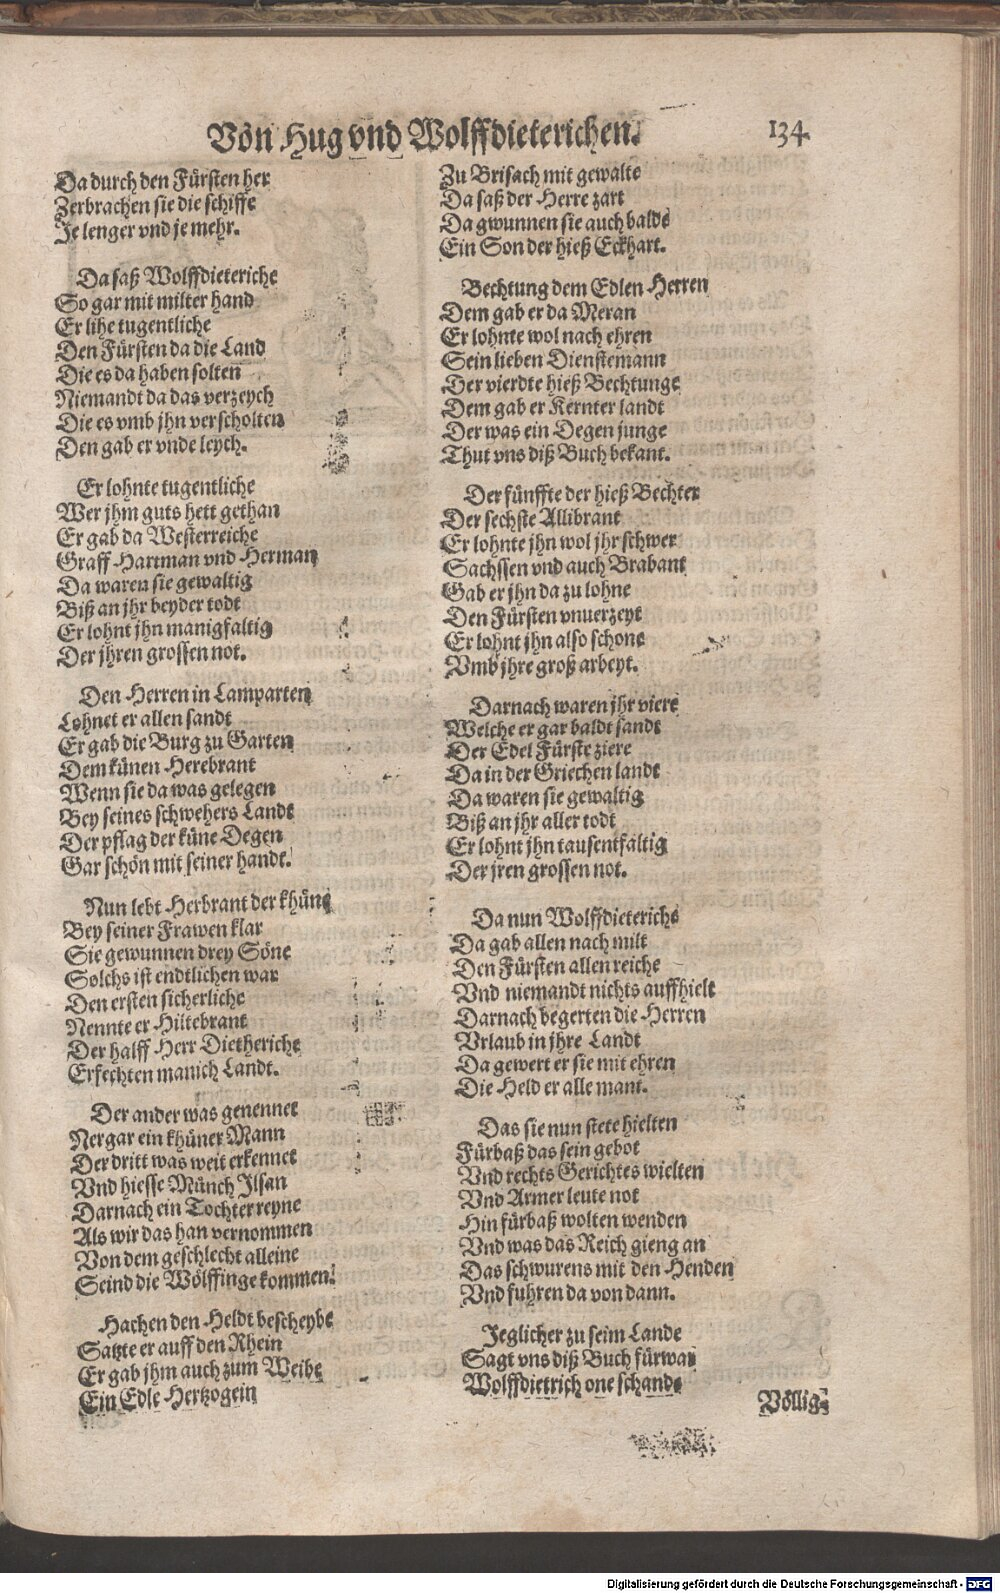 Von Hug vnd Wolffdieterichen.
134
Da durch den Fürsten her
Zerbrachen sie die schiffe
Je lenger vnd je mehr.
Da saß Wolffdieteriche
So gar mit milter hand
Er lihe tugentliche
Den Fürsten da die Land
Die es da haben solten
Niemandt da das verzeych
Die es vmb jhn verscholten
Den gab er vnde leych.
Er lohnte tugentliche
Wer jhm guts hett gethan
Er gab da Westerreiche
Graff Hartman vnd Herman
Da waren sie gewaltig
Biß an jhr beyder todt
Er lohnt jhn manigfaltig
Der jhren grossen not.
Den Herren in Lamparten
Lohnet er allen sandt
Er gab die Burg zu Garten
Dem künen Herebrant
Wenn sie da was gelegen
Bey seines schwehers Landt
Der pflag der küne Degen
Gar schön mit seiner handt.
Nun lebt Herbrant der khüne
Bey seiner Frawen klar
Sie gewunnen drey Söne
Solchs ist endtlichen war
Den ersten sicherliche
Nennte er Hiltebrant
Der halff Herr Dietheriche
Erfechten manich Landt.
Der ander was genennet
Nergar ein khüner Mann
Der dritt was weit erkennet
Vnd hiesse Münch Ilsan
Darnach ein Tochter reyne
Als wir das han vernommen
Von dem geschlecht alleine
Seind die Wölffinge kommen.
Hachen den Heldt bescheybe
Satzte er auff den Rhein
Er gab jhm auch zum Weibe
Ein Edle Hertzogein
Zu Brisach mit gewalte
Da saß der Herre zart
Da gwunnen sie auch balde
Ein Son der hieß Eckhart.
Bechtung dem Edlen Herren
Dem gab er da Meran
Er lohnte wol nach ehren
Sein lieben Dienstemann
Der vierdte hieß Bechtunge
Dem gab er Kernter landt
Der was ein Degen junge
Thut vns diß Buch bekant.
Der fünffte der hieß Bechter
Der sechste Allibrant
Er lohnte jhn wol jhr schwer
Sachssen vnd auch Brabant
Gab er jhn da zu lohne
Den Fürsten vnuerzeyt
Er lohnt jhn also schone
Vmb jhre groß arbeyt.
Darnach waren jhr viere
Welche er gar baldt sandt
Der Edel Fürste ziere
Da in der Griechen landt
Da waren sie gewaltig
Biß an jhr aller todt
Er lohnt jhn tausentfältig
Der jren grossen not.
Da nun Wolffdieteriche
Da gab allen nach milt
Den Fürsten allen reiche
Vnd niemandt nichts auffhielt
Darnach begerten die Herren
Vrlaub in jhre Landt
Da gewert er sie mit ehren
Die Held er alle mant.
Das sie nun stete hielten
Fürbaß das sein gebot
Vnd rechts Gerichtes wielten
Vnd Armer leute not
Hin fürbaß wolten wenden
Vnd was das Reich gieng an
Das schwurens mit den Henden
Vnd fuhren da von dann.
Jeglicher zu seim Lande
Sagt vns diß Buch fürwar
Wolffdietrich one schande
Völlig-
Digitalisierung gefördert durch die Deutsche Forschungsgemeinschaft - DFG